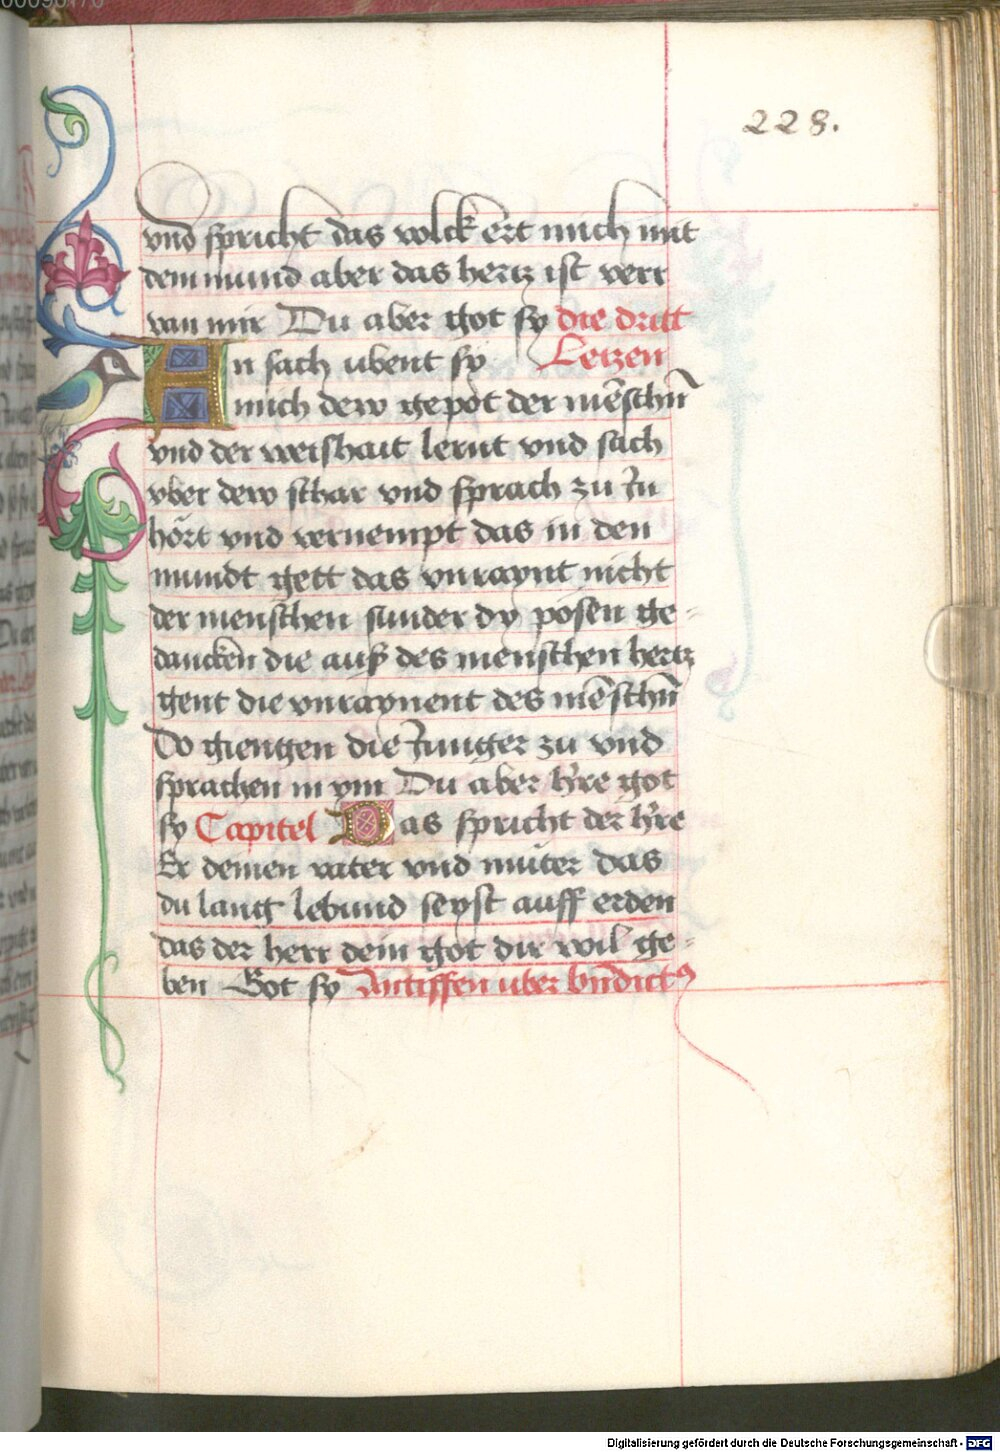 228.
vnd spricht das volck ert mich mit
dem mund aber das hertz ist verr
van mir Du aber got sy die dritt
An sach ubent sy Letzen
mich dew gepot der mēschn̄
vnd der weishait lernt vnd sach
vber dew schar vnd sprach zu In
hört vnd vernempt das in den
mundt gett das vnraynt nicht
der menschen sunder dy pösen ge-
dancken die auß des menschen hertz
gent die vnraynent des mēschn̄
Do giengen die Junger zu vnd
sprachen in ym Du aber h̄re got
sy Capitel Das spricht der h̄re
Er deinen vater vnd muter das
du lang lebund seyst auff erden
das der herr dein got dir wil ge-
ben Got sy Antiffen uber bn̄dictꝰ
Digitalisierung gefördert durch die Deutsche Forschungsgemeinschaft - DFG